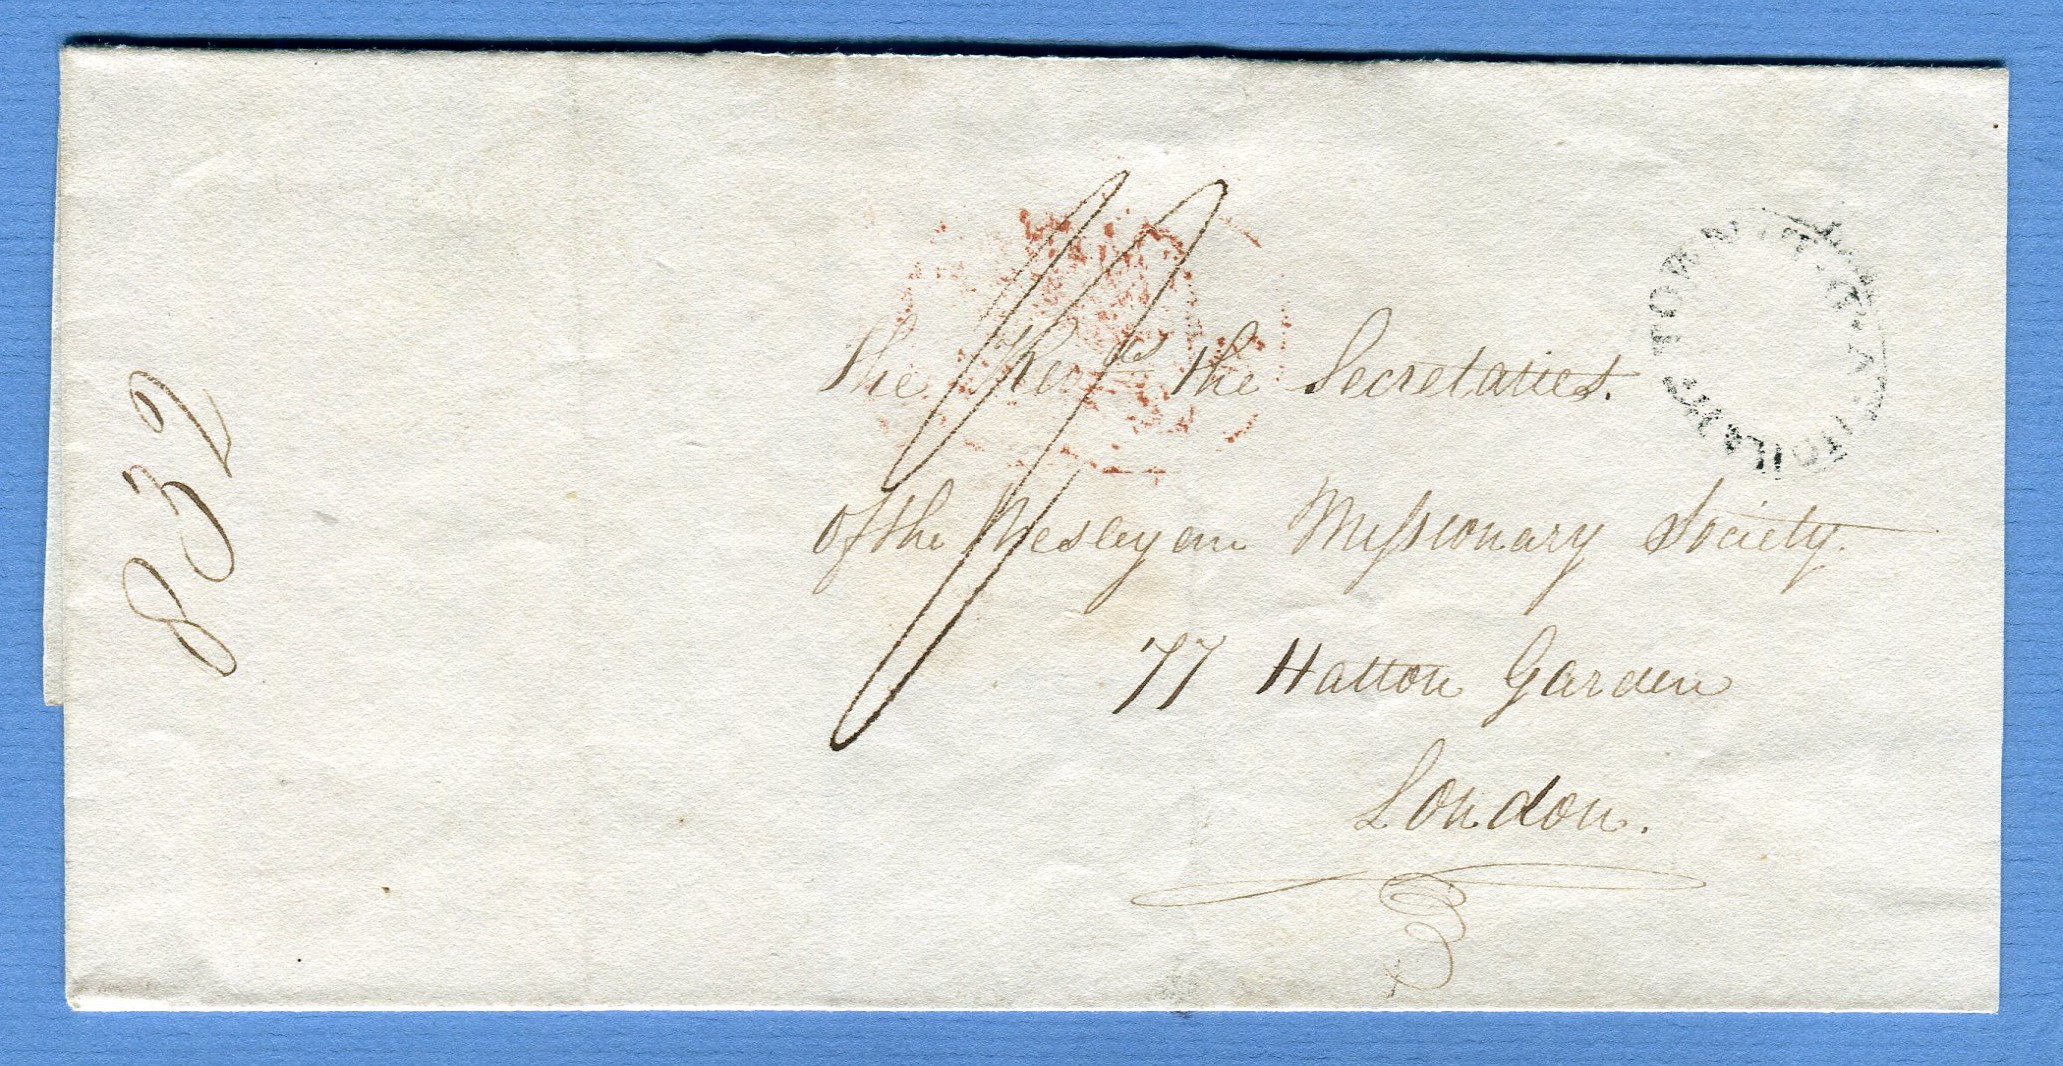 The Rev.ds the Secretaries.
of the Wesleyan Missionary Society.
77 Hatton Garden
London.
832